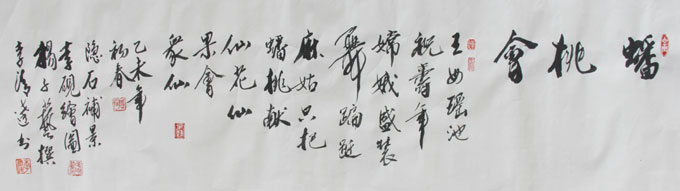 蟠桃會
王母瑶池
祝壽年
嫦娥盛裝
舞蹁跹
麻姑只把
蟠桃献
仙花仙
果會
眾仙
乙未年
初春
隐石補景
李硯繪圖
楊子藝撰
李清蓮书